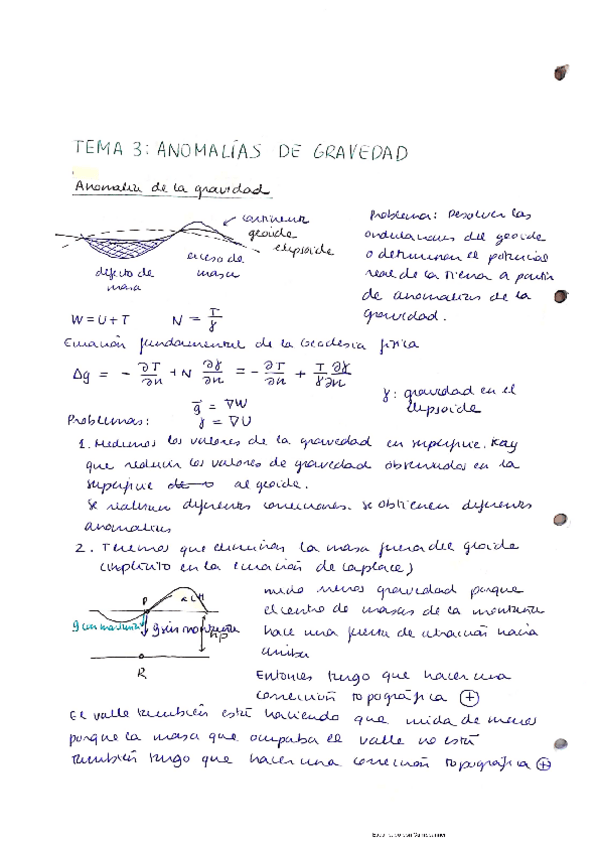 TEMA 3: ANOMALÍAS DE GRAVEDAD
Anomalia de la gravedad
continente
geoide
elipsoide
exceso de
masa
defecto de
masa
Problema: Resolver las
ondulaciones del geoide
o determinar el potencial
real de la Tierra a partir
de anomalias de la
gravedad.
W = U + T N = T/γ
Ecuación fundamental de la Geodesia física
Δg = - ∂T/∂n + N ∂γ/∂n = - ∂T/∂n + T/γ ∂γ/∂n
γ: gravedad en el
elipsoide
g = ∇W
Problemas: γ = ∇U
1. Medimos los valores de la gravedad en superficie. Hay
que reducir los valores de gravedad observados en la
superficie al geoide.
Se realizan diferentes correcciones. Se obtienen diferentes
anomalias
2. Tenemos que eliminar la masa fuera del geoide
(implícito en la ecuación de Laplace)
P
g con montaña
g sin montaña
hp
R
mido menos gravedad porque
el centro de masas de la montaña
hace una fuerza de atracción hacia
arriba
Entonces tengo que hacer una
corrección topográfica ⊕
El valle también está haciendo que mida de menos
porque la masa que ocupaba el valle no está
también tengo que hacer una corrección topográfica ⊕